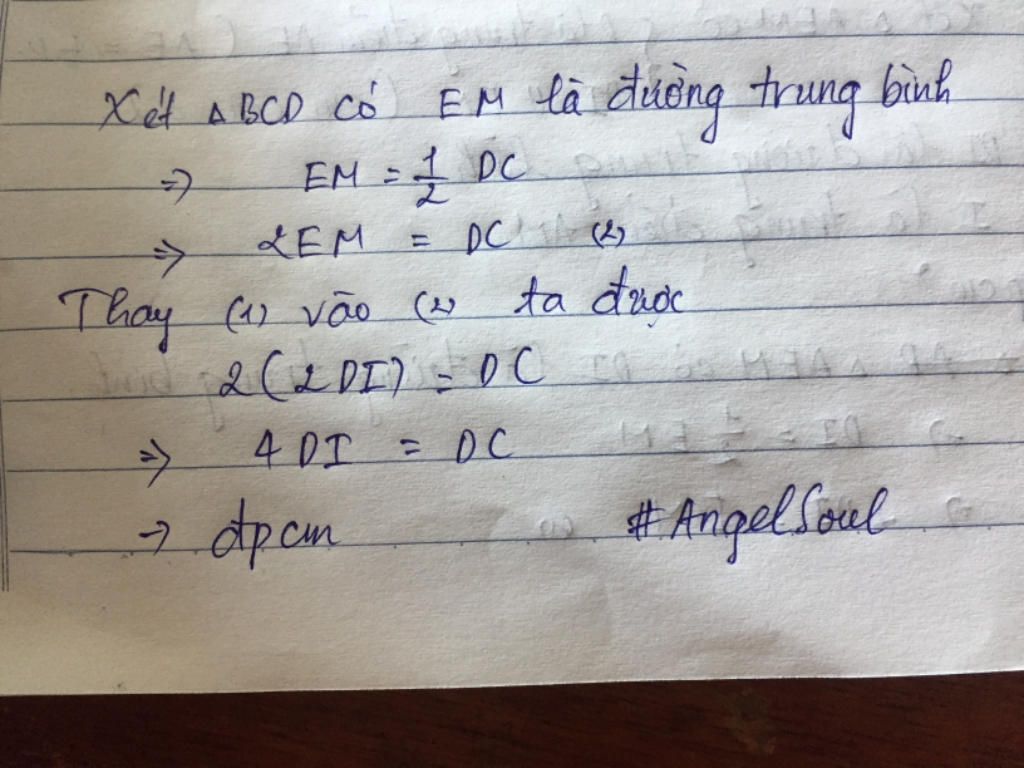 Xét ΔBCD có EM là đường trung bình
=> EM = 1/2 DC
=> 2EM = DC (2)
Thay (1) vào (2) ta được
2(2DI) = DC
=> 4DI = DC
-> đpcm #AngelSoul